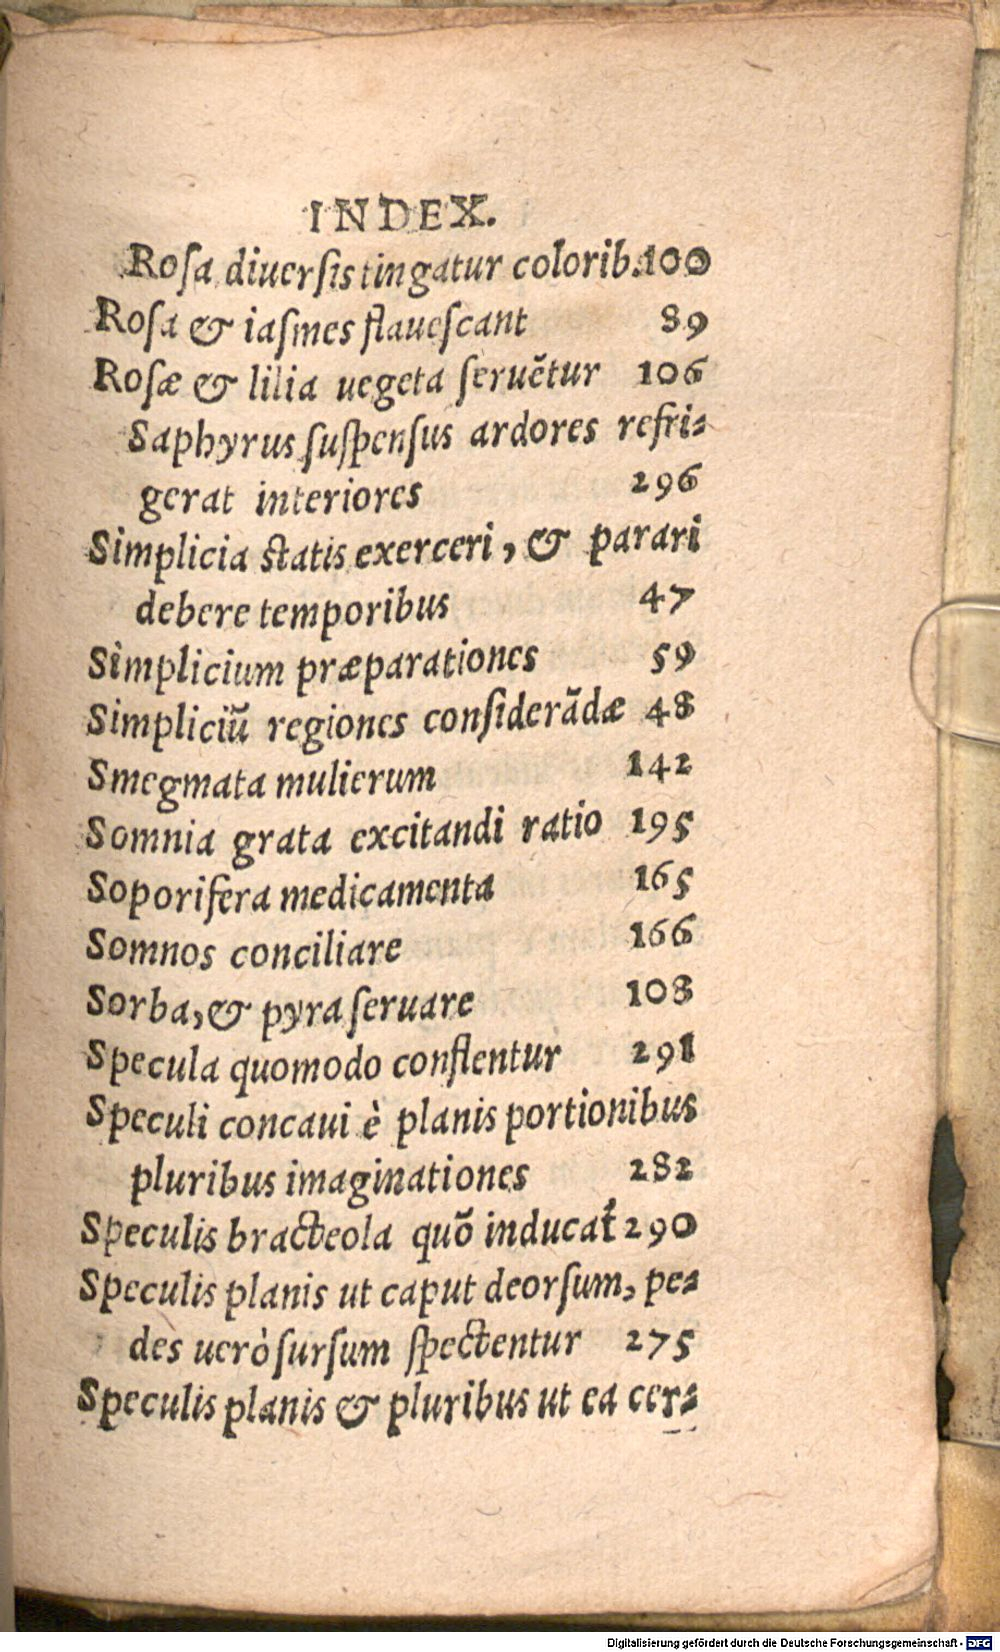 INDEX.
Roſa diuerſis tingatur colorib. 100
Roſa & iaſmes flaueſcant 89
Roſæ & lilia uegeta ſeruẽtur 106
Saphyrus ſuſpenſus ardores refri-
gerat interiores 296
Simplicia ſtatis exerceri, & parari
debere temporibus 47
Simplicium præparationes 59
Simpliciũ regiones conſiderãdæ 48
Smegmata mulierum 142
Somnia grata excitandi ratio 195
Soporifera medicamenta 165
Somnos conciliare 166
Sorba, & pyra ſeruare 108
Specula quomodo conflentur 291
Speculi concaui è planis portionibus
pluribus imaginationes 282
Speculis bracteola quõ inducat᷑ 290
Speculis planis ut caput deorſum, pe-
des uerò ſurſum ſpectentur 275
Speculis planis & pluribus ut ea cer-
Digitalisierung gefördert durch die Deutsche Forschungsgemeinschaft - DFG